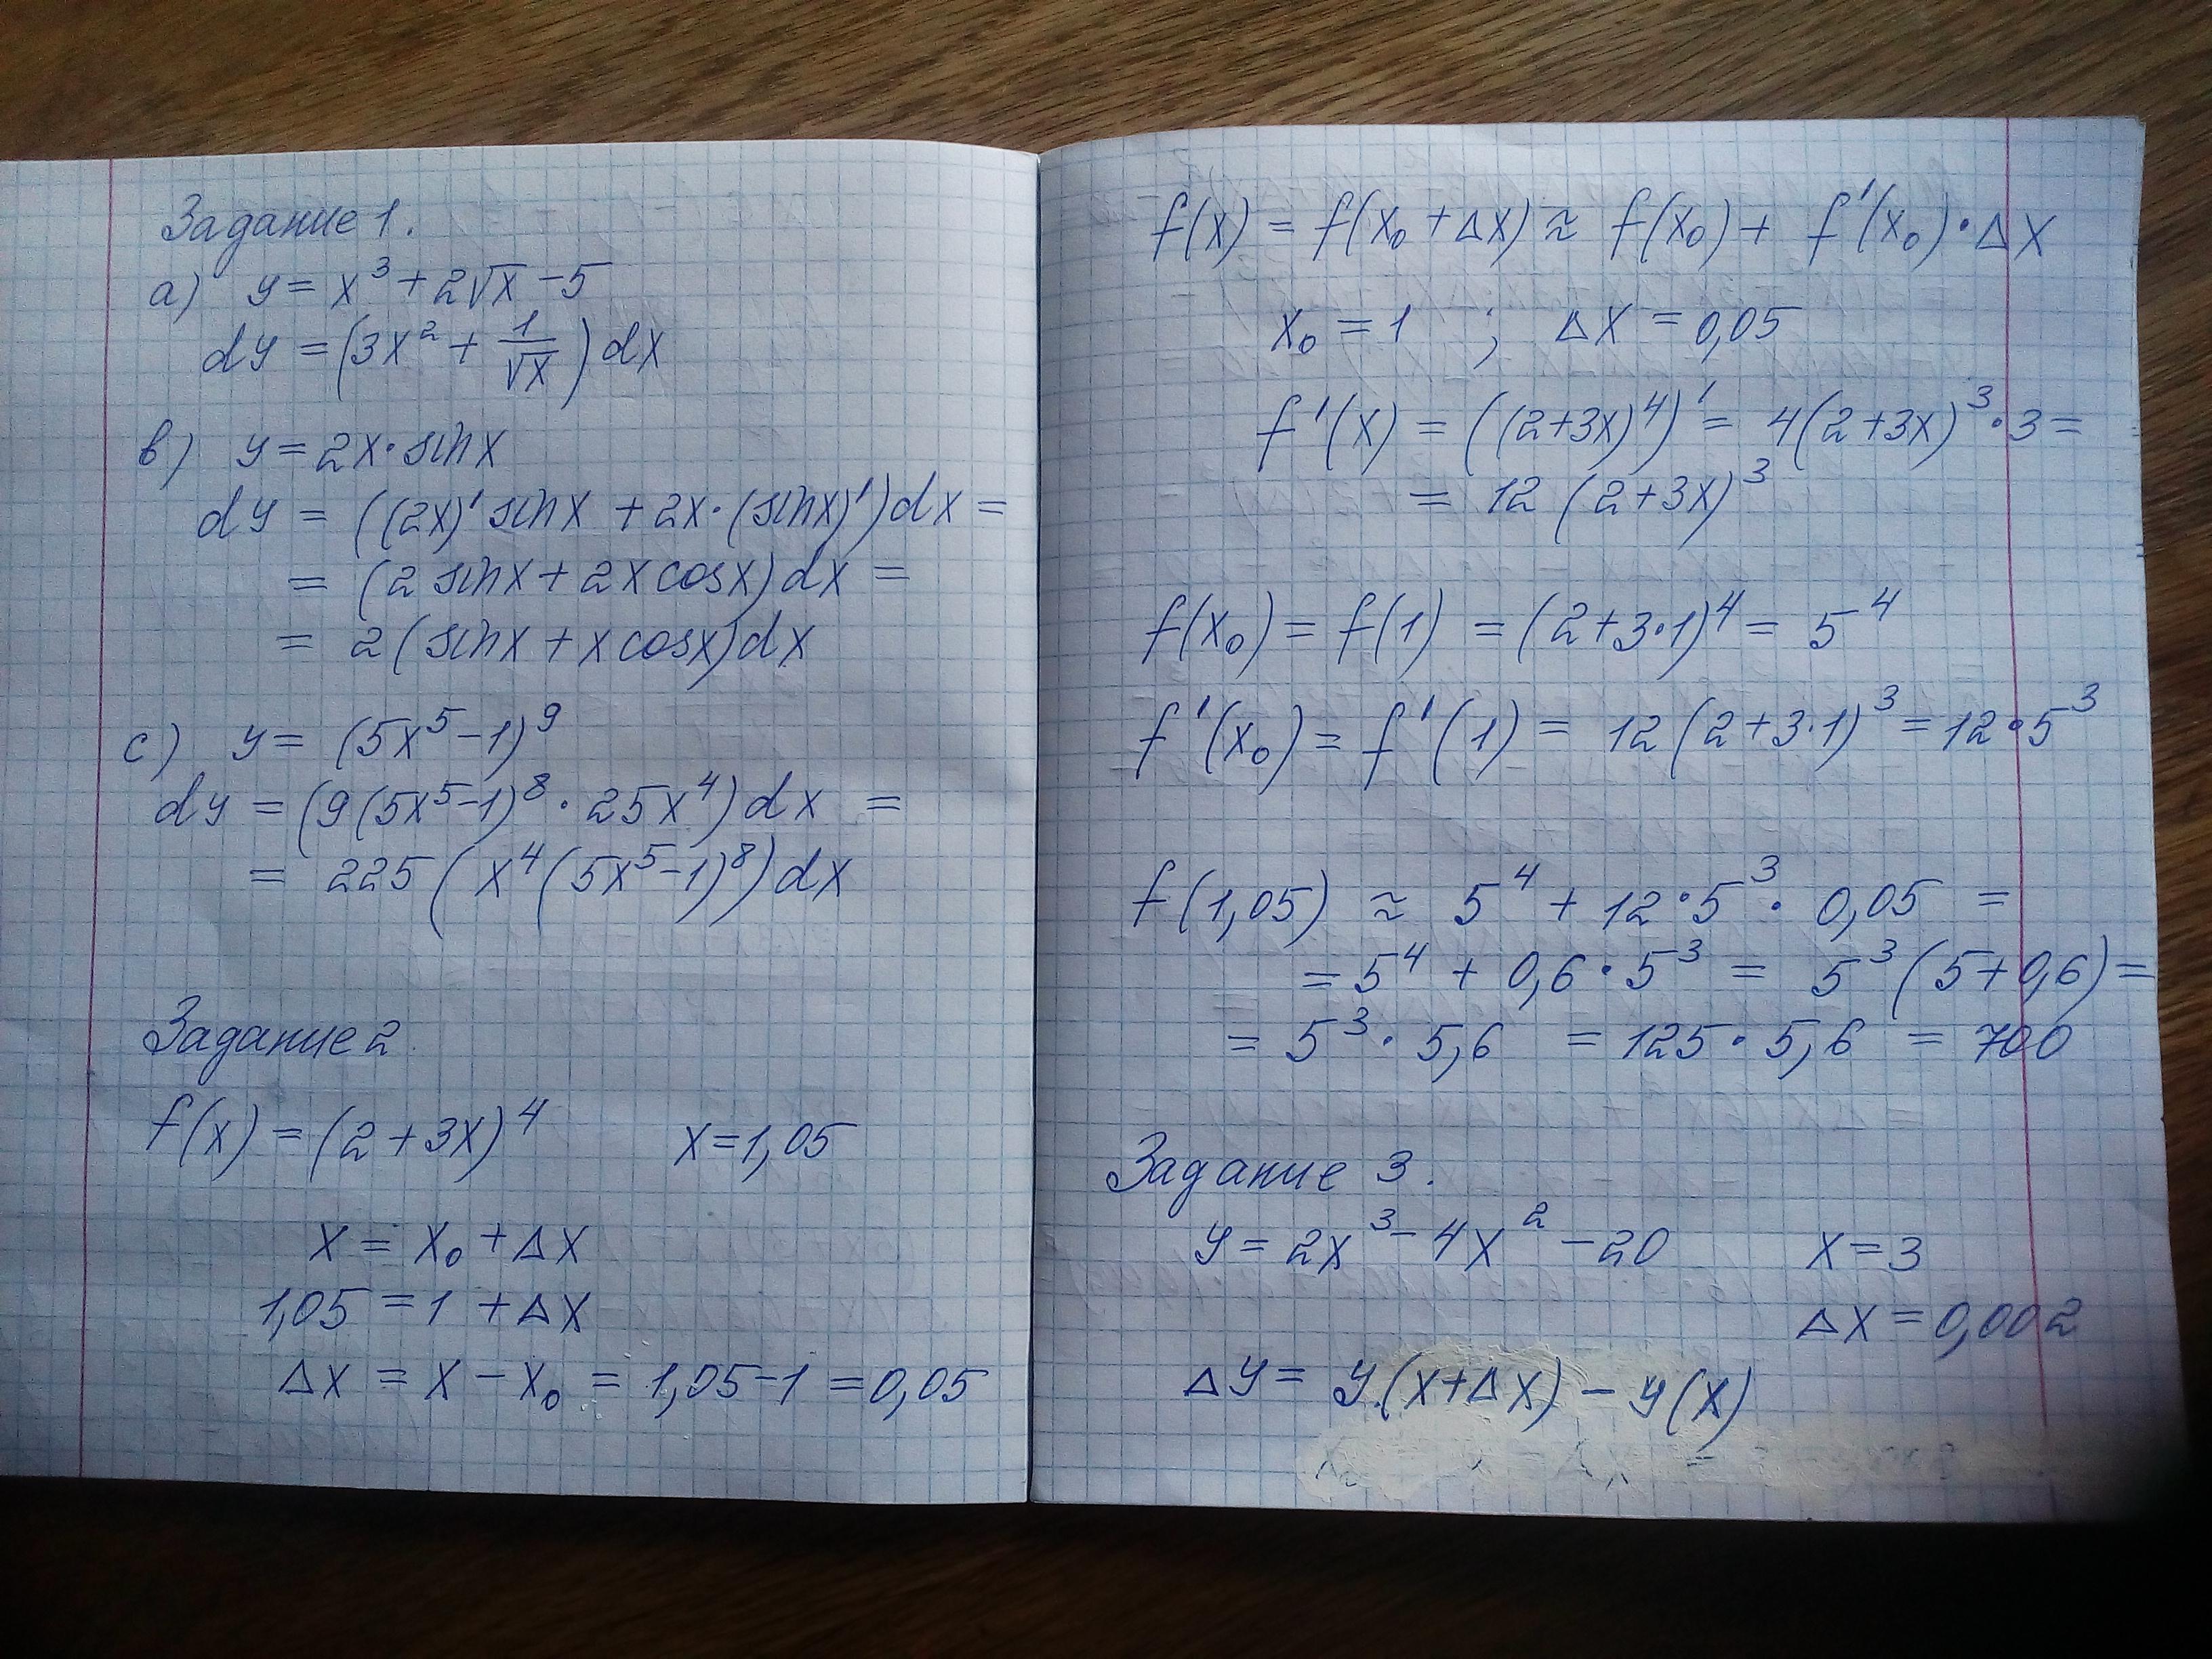 Задание 1.
a) y = x³ + 2√x − 5
dy = (3x² + 1/√x) dx
b) y = 2x · sin x
dy = ((2x)' sin x + 2x · (sin x)') dx =
= (2 sin x + 2x cos x) dx =
= 2 (sin x + x cos x) dx
c) y = (5x⁵ − 1)⁹
dy = (9(5x⁵ − 1)⁸ · 25x⁴) dx =
= 225 (x⁴ (5x⁵ − 1)⁸) dx
Задание 2.
f(x) = (2 + 3x)⁴ x = 1,05
x = x₀ + Δx
1,05 = 1 + Δx
Δx = x − x₀ = 1,05 − 1 = 0,05
f(x) = f(x₀ + Δx) ≈ f(x₀) + f'(x₀) · Δx
x₀ = 1 ; Δx = 0,05
f'(x) = ((2 + 3x)⁴)' = 4(2 + 3x)³ · 3 =
= 12 (2 + 3x)³
f(x₀) = f(1) = (2 + 3·1)⁴ = 5⁴
f'(x₀) = f'(1) = 12 (2 + 3·1)³ = 12 · 5³
f(1,05) ≈ 5⁴ + 12 · 5³ · 0,05 =
= 5⁴ + 0,6 · 5³ = 5³ (5 + 0,6) =
= 5³ · 5,6 = 125 · 5,6 = 700
Задание 3.
y = 2x³ − 4x² − 20 x = 3
Δx = 0,002
Δy = y(x + Δx) − y(x)